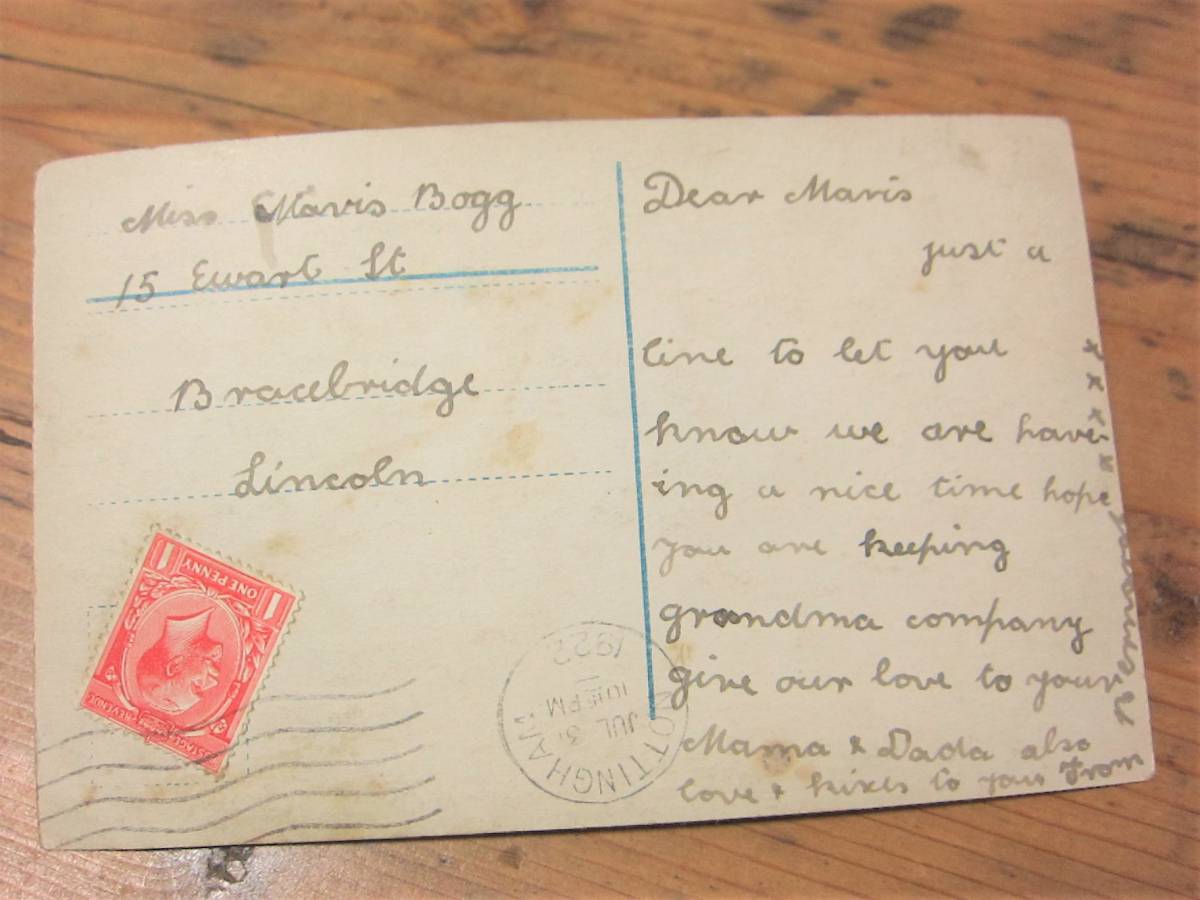 Miss Mavis Bogg
15 Ewart St
Bracebridge
Lincoln
1 ONE PENNY 1
POSTAGE REVENUE
NOTTINGHAM
JUL 3
10 15 PM
1922
Dear Mavis
just a
line to let you
know we are have-
ing a nice time hope
you are keeping
grandma company
give our love to your
Mama & Dada also
love & kixes to you From
x x x x